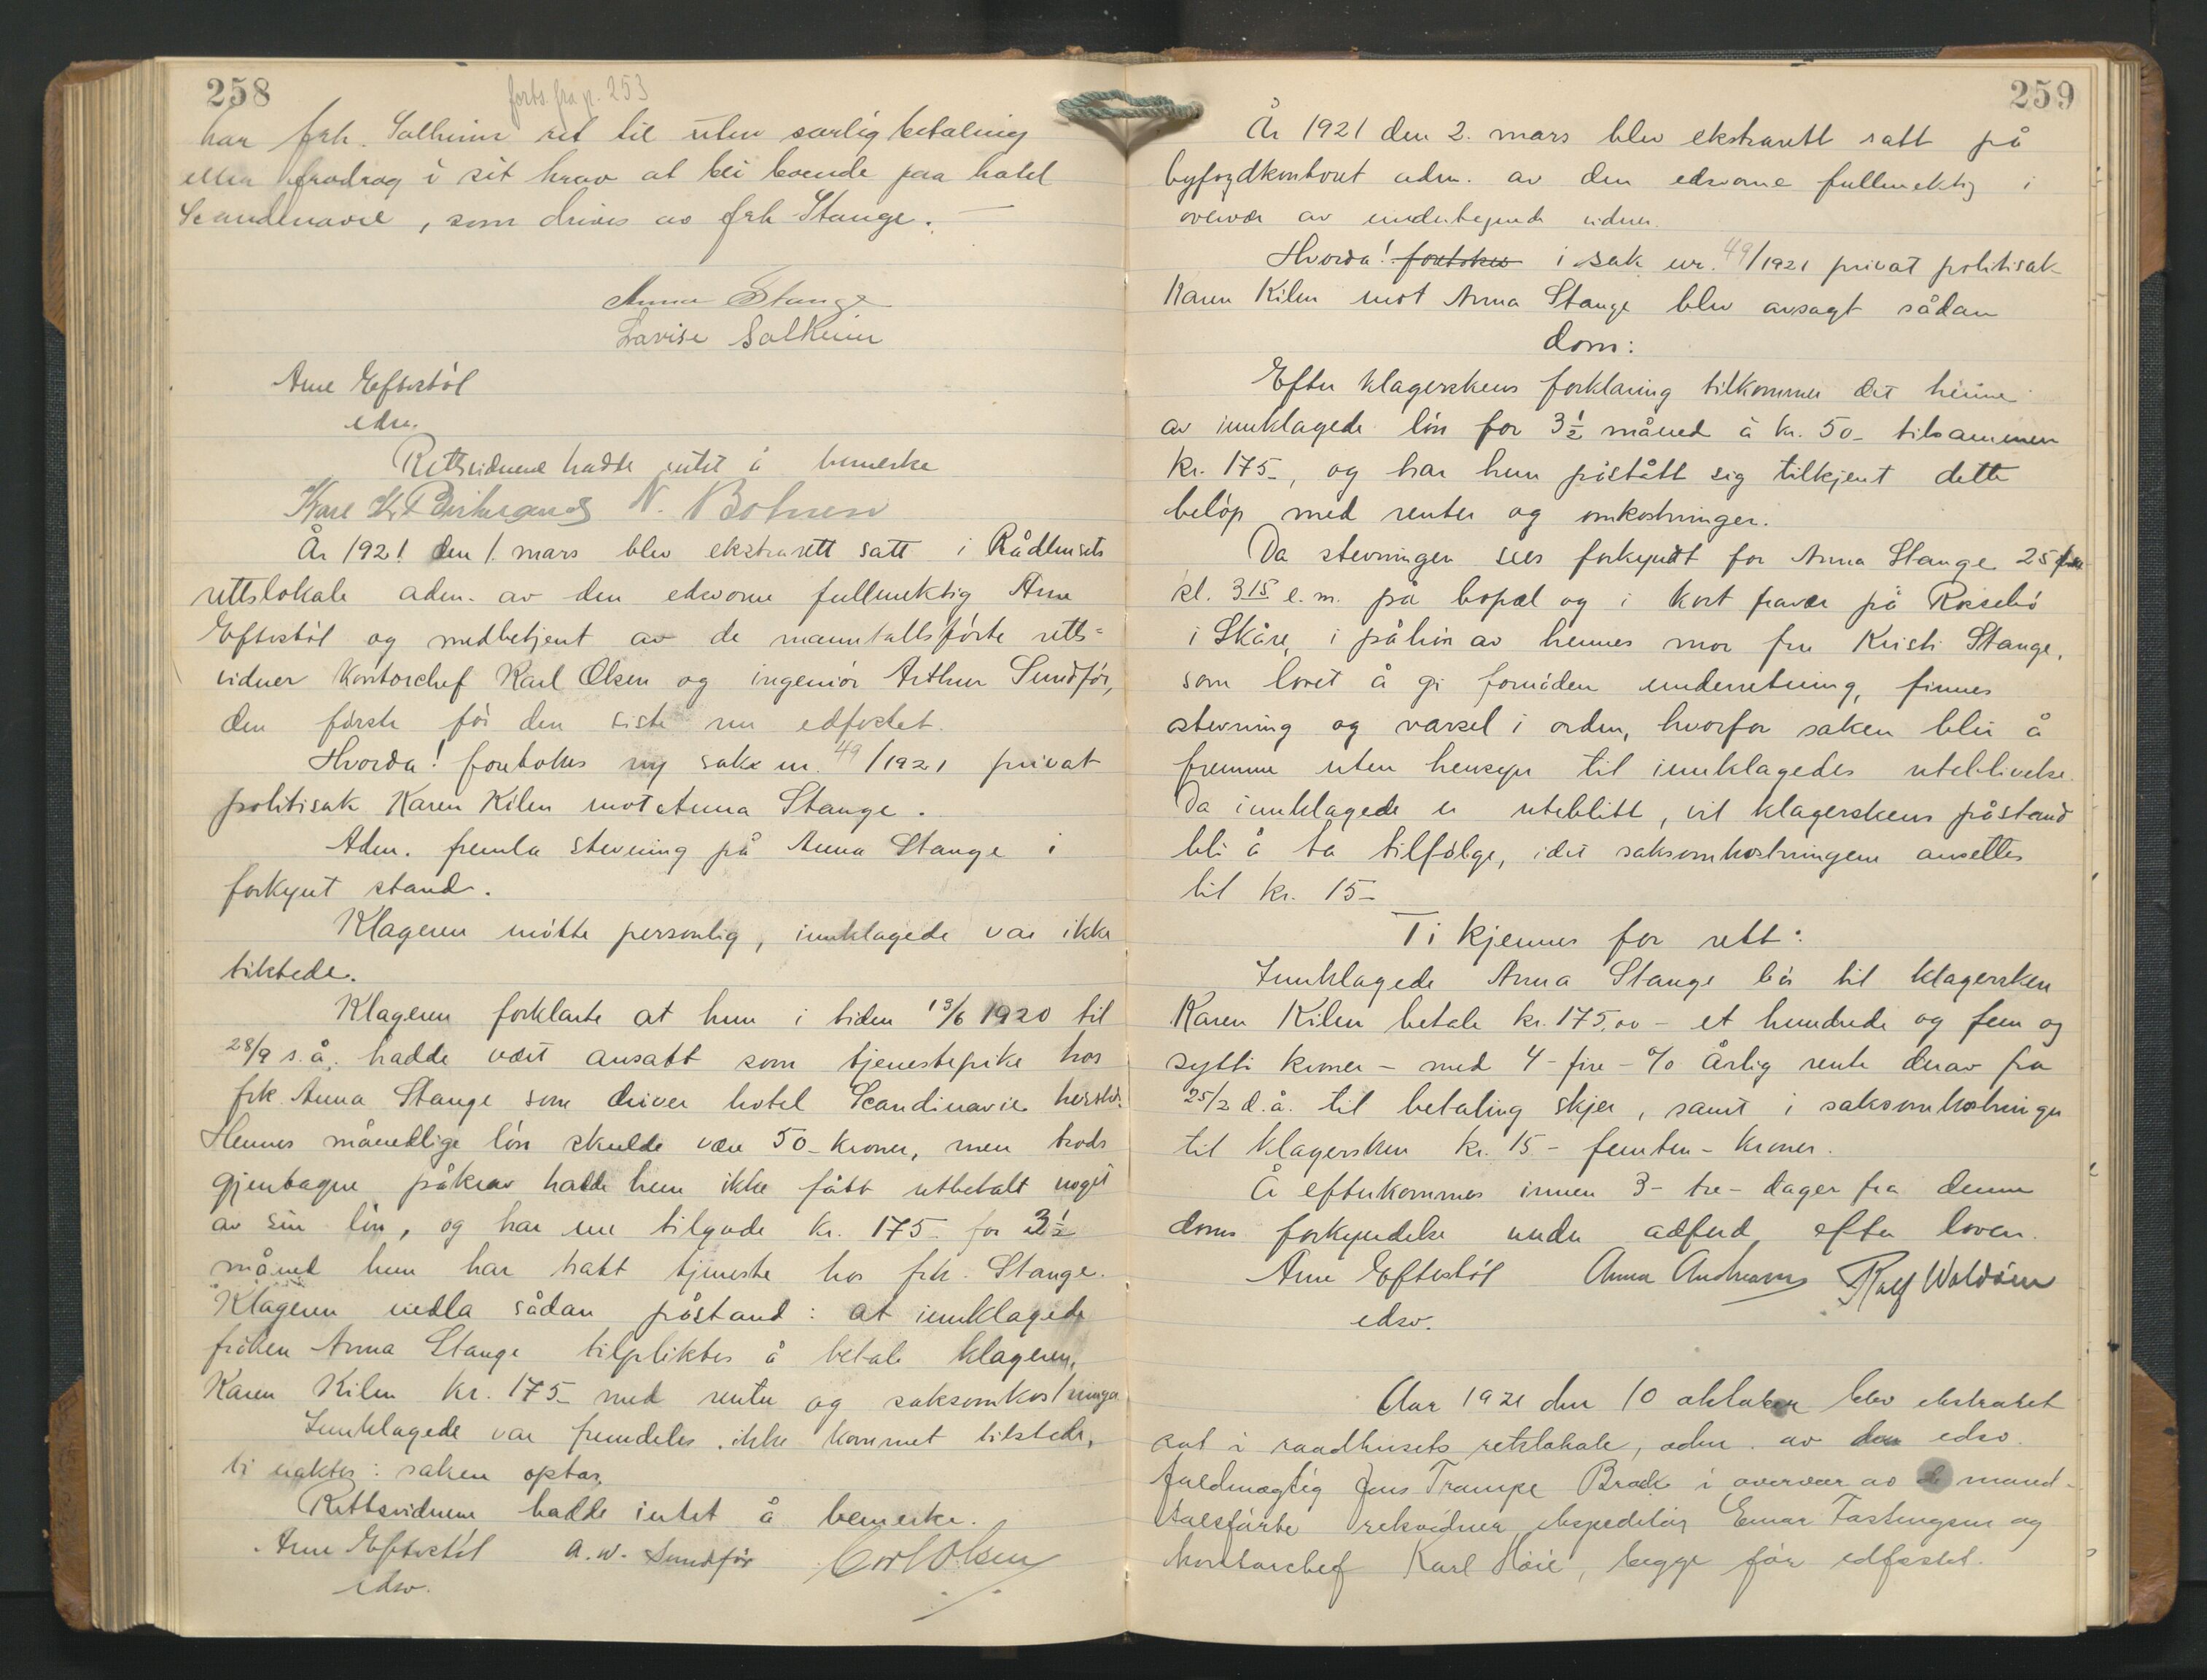 258
forts. fra p. 253
har frk. Solheim ret til uten særlig betaling
eller fradrag i sit krav at bli boende paa hotel
Scandinavie, som drives av frk Stange. —
Anna Stange
Lovise Solheim
Arne Eftestöl
edsv.
Rettsvidnene hadde intet å bemerke
N. Botnen
År 1921 den 1. mars blev ekstrarett satt i Rådhusets
rettslokale adm. av den edsvorne fullmektig Arne
Eftestöl og medbetjent av de manntallsförte retts-
vidner Kontorchef Karl Olsen og ingeniör Arthur Sundför,
den förste för den siste nu edfestet.
Hvorda! foretokes ny sak nr. 49/1921 privat
politisak Karen Kilen mot Anna Stange.
Adm. fremla stevning på Anna Stange i
forkynt stand.
Klageren mötte personlig, innklagede var ikke
tilstede.
Klageren forklarte at hun i tiden 13/6 1920 til
28/9 s.å. hadde vært ansatt som tjenestepike hos
frk. Anna Stange som driver hotel Scandinavie hersteds.
Hennes månedlige lön skulde være 50- kroner, men trods
gjentagne påkrav hadde hun ikke fått utbetalt noget
av sin lön, og har nu tilgode kr. 175- for 3½
måned hun har hatt tjeneste hos frk. Stange.
Klageren nedla sådan påstand: at innklagede
fröken Anna Stange tilpliktes å betale klageren,
Karen Kilen kr. 175- med renter og saksomkostninger
Innklagede var fremdeles ikke kommet tilstede,
ti vaktes: saken optas.
Rettsvidnene hadde intet å bemerke.
Arne Eftestöl A. W. Sundför Carl Olsen
edsv.
259
År 1921 den 2. mars blev ekstrarett satt på
byfogdkontoret adm. av den edsvorne fullmektig i
overvær av undertegnede vidner.
Hvorda! foretokes i sak nr. 49/1921 privat politisak
Karen Kilen mot Anna Stange blev avsagt sådan
dom:
Efter klagerskens forklaring tilkommer det henne
av innklagede lön for 3½ måned à kr. 50- tilsammen
kr. 175-, og har hun påstått sig tilkjent dette
belöp med renter og omkostninger.
Da stevningen sees forkyndt for Anna Stange 25 fbr.
kl. 3 15 e.m. på bopæl og i kort fravær på Rossebö
i Skåre, i påhör av hennes mor fru Kristi Stange,
som lovet å gi fornöden underretning, finnes
stevning og varsel i orden, hvorfor saken blir å
fremme uten hensyn til innklagedes uteblivelse.
Da innklagede er uteblitt, vil klagerskens påstand
bli å ta tilfölge, idet saksomkostningene ansettes
til kr. 15-
Ti kjennes for rett:
Innklagede Anna Stange bör til klagersken
Karen Kilen betale kr. 175,00 - et hundrede og fem og
sytti kroner - med 4 - fire - % årlig rente derav fra
25/2 d.å. til betaling skjer, samt i saksomkostninger
til klagersken kr. 15 - femten - kroner.
Å efterkommes innen 3 - tre - dager fra denne
doms forkyndelse under adferd efter loven.
Arne Eftestöl Anna Andreasen Ralf Waldöen
edsv.
Aar 1921 den 10 oktober blev ekstraret
sat i raadhusets retslokale, adm. av den edsv.
fuldmægtig Jens Trampe Broch i overvær av de mand-
talsförte retsvidner, ekspeditör Einar Fastingsen og
kontorchef Karl Höie, begge för edfæstet.